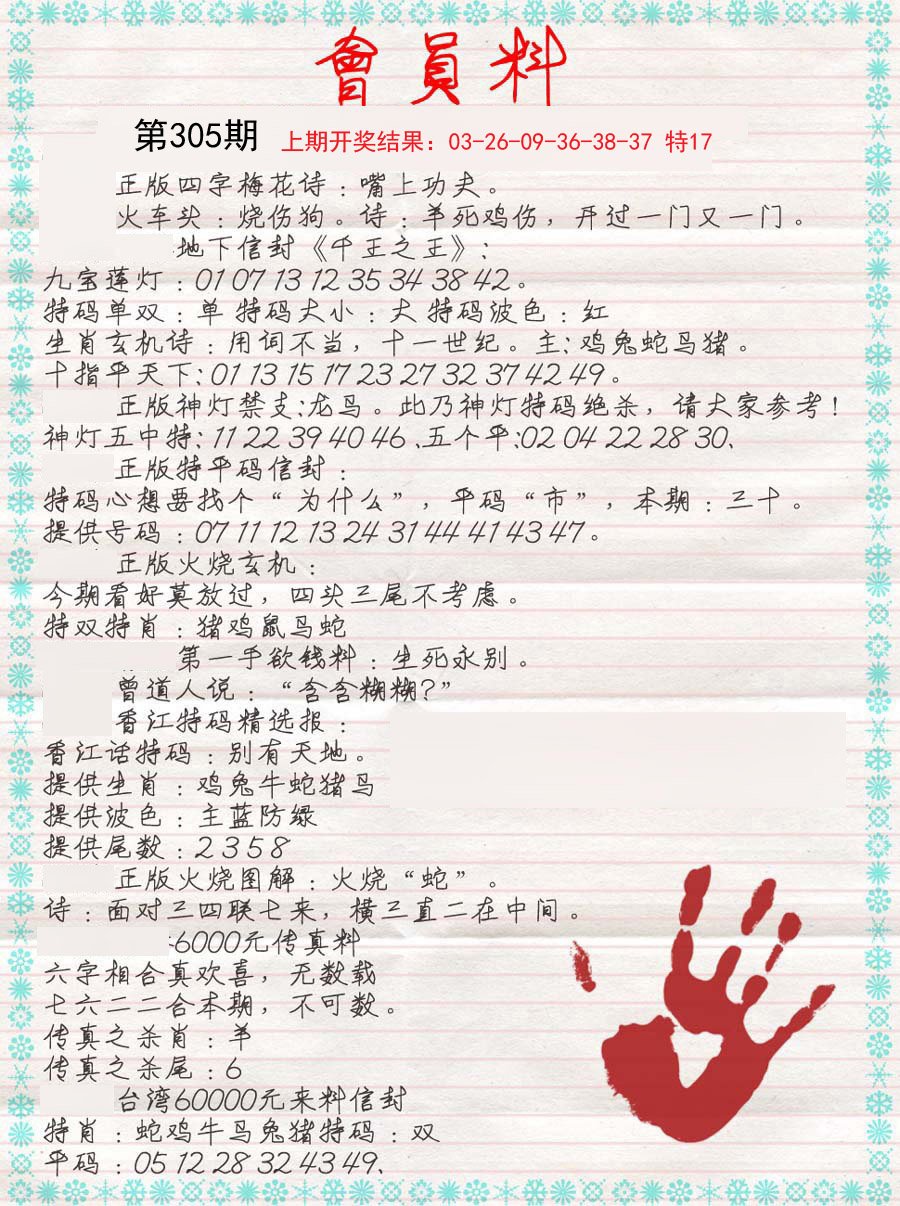 會員料
第305期 上期开奖结果：03-26-09-36-38-37 特17
正版四字梅花诗：嘴上功夫。
火车头：烧伤狗。诗：羊死鸡伤，开过一门又一门。
地下信封《千王之王》：
九宝莲灯：01 07 13 12 35 34 38 42。
特码单双：单 特码大小：大 特码波色：红
生肖玄机诗：用词不当，十一世纪。主：鸡兔蛇马猪。
十指平天下：01 13 15 17 23 27 32 37 42 49。
正版神灯禁支：龙马。此乃神灯特码绝杀，请大家参考！
神灯五中特：11 22 39 40 46、五个平：02 04 22 28 30、
正版特平码信封：
特码心想要找个“为什么”，平码“市”，本期：三十。
提供号码：07 11 12 13 24 31 44 41 43 47。
正版火烧玄机：
今期看好莫放过，四头三尾不考虑。
特双特肖：猪鸡鼠马蛇
第一手欲钱料：生死永别。
曾道人说：“含含糊糊？”
香江特码精选报：
香江话特码：别有天地。
提供生肖：鸡兔牛蛇猪马
提供波色：主蓝防绿
提供尾数：2 3 5 8
正版火烧图解：火烧“蛇”。
诗：面对三四联七来，横三直二在中间。
6000元传真料
六字相合真欢喜，无数载
七六二二合本期，不可数。
传真之杀肖：羊
传真之杀尾：6
台湾60000元来料信封
特肖：蛇鸡牛马兔猪特码：双
平码：05 12 28 32 43 49、